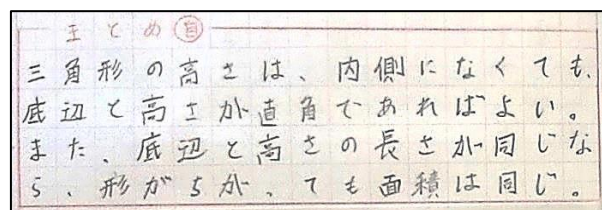 まとめ 自
三角形の高さは、内側になくても、
底辺と高さが直角であればよい。
また、底辺と高さの長さが同じな
ら、形がちがっても面積は同じ。